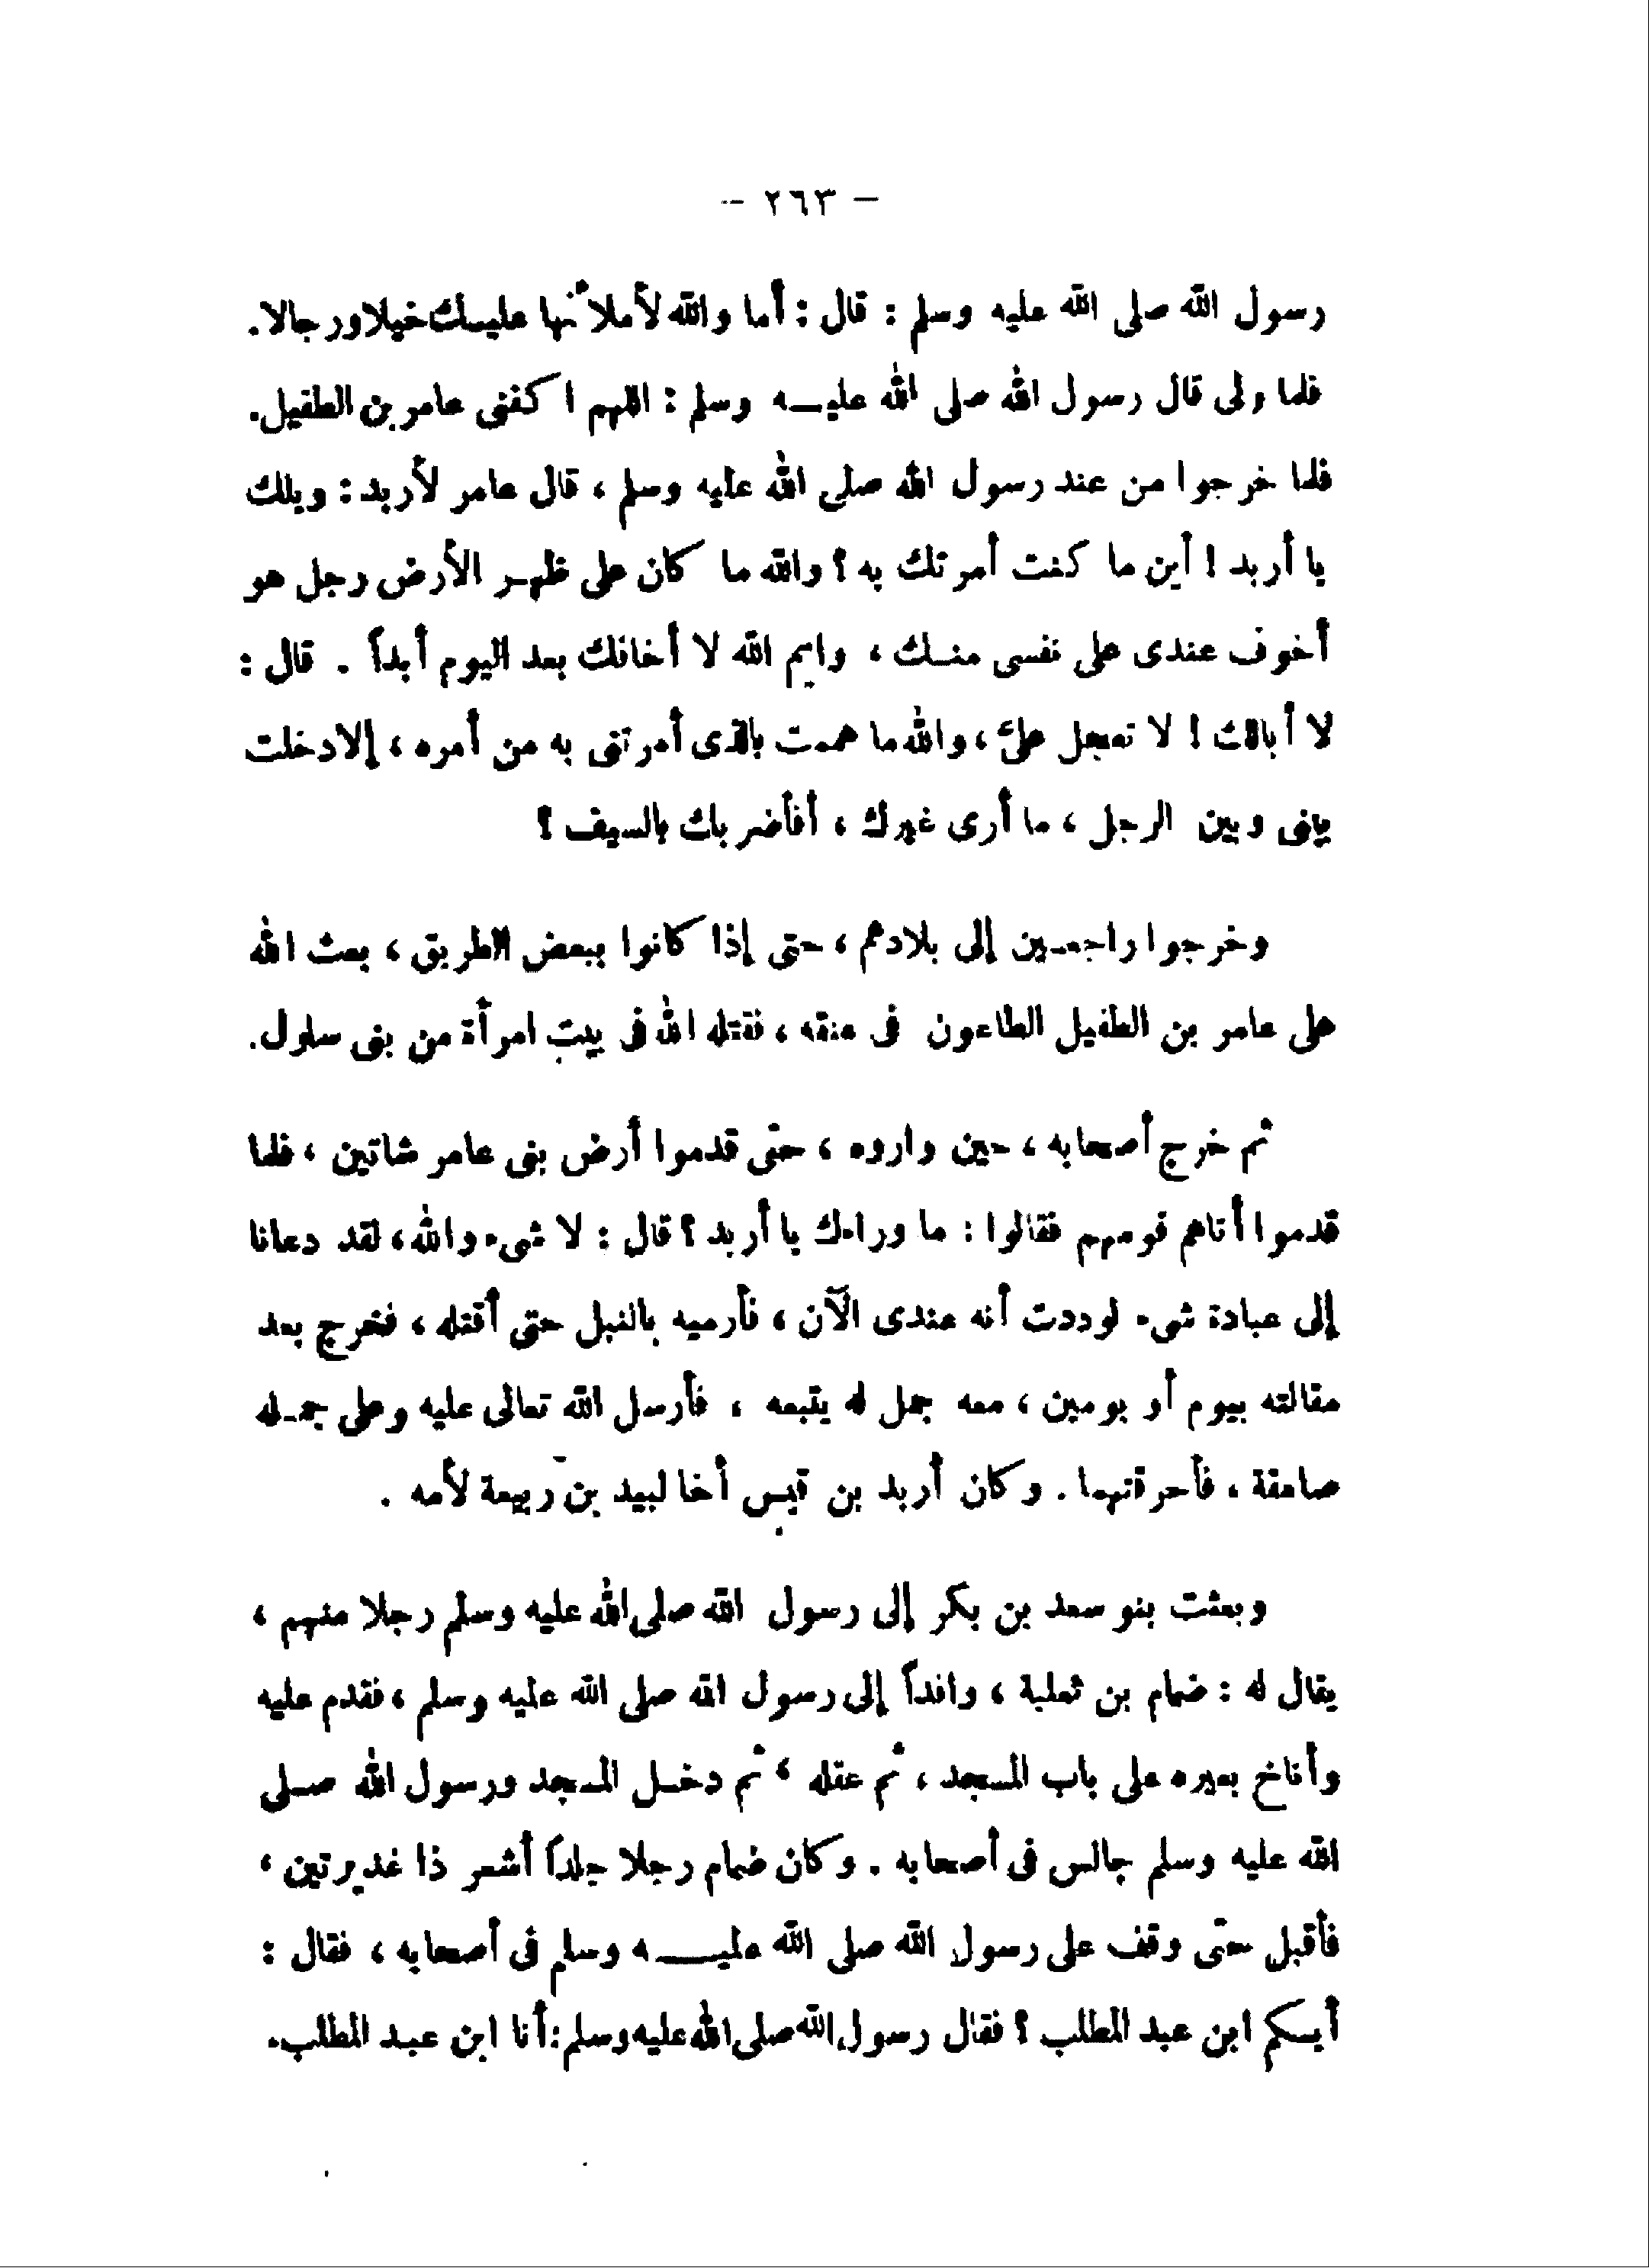 — ٢٦٣ —
رسول الله صلى الله عليه وسلم : قال : أما والله لأملأنها عليك خيلا ورجالا.
فلما ولى قال رسول الله صلى الله عليه وسلم : اللهم اكفنى عامر بن الطفيل.
فلما خرجوا من عند رسول الله صلى الله عليه وسلم ، قال عامر لأربد : ويلك
يا أربد ! أين ما كنت أمرتك به ؟ والله ما كان على ظهر الأرض رجل هو
أخوف عندى على نفسى منك ، وايم الله لا أخافك بعد اليوم أبداً . قال :
لا أبالك ! لا تعجل علىّ ، والله ما هممت بالذى أمرتنى به من أمره ، إلا دخلت
بينى وبين الرجل ، ما أرى غيرك ، أفأضربك بالسيف ؟
وخرجوا راجعين إلى بلادهم ، حتى إذا كانوا ببعض الطريق ، بعث الله
على عامر بن الطفيل الطاعون فى عنقه ، فقتله الله فى بيت امرأة من بنى سلول.
ثم خرج أصحابه ، حين واروه ، حتى قدموا أرض بنى عامر شاتين ، فلما
قدموا أتاهم قومهم فقالوا : ما وراءك يا أربد ؟ قال : لا شىء والله ، لقد دعانا
إلى عبادة شىء لوددت أنه عندى الآن ، فأرميه بالنبل حتى أقتله ، فخرج بعد
مقالته بيوم أو يومين ، معه جمل له يتبعه ، فأرسل الله تعالى عليه وعلى جمله
صاعقة ، فأحرقتهما . وكان أربد بن قيس أخا لبيد بن ربيعة لأمه .
وبعثت بنو سعد بن بكر إلى رسول الله صلى الله عليه وسلم رجلا منهم ،
يقال له : ضمام بن ثعلبة ، وافداً إلى رسول الله صلى الله عليه وسلم ، فقدم عليه
وأناخ بعيره على باب المسجد ، ثم عقله ، ثم دخل المسجد ورسول الله صلى
الله عليه وسلم جالس فى أصحابه . وكان ضمام رجلا جلداً أشعر ذا غديرتين ،
فأقبل حتى وقف على رسول الله صلى الله عليه وسلم فى أصحابه ، فقال :
أيكم ابن عبد المطلب ؟ فقال رسول الله صلى الله عليه وسلم : أنا ابن عبد المطلب.